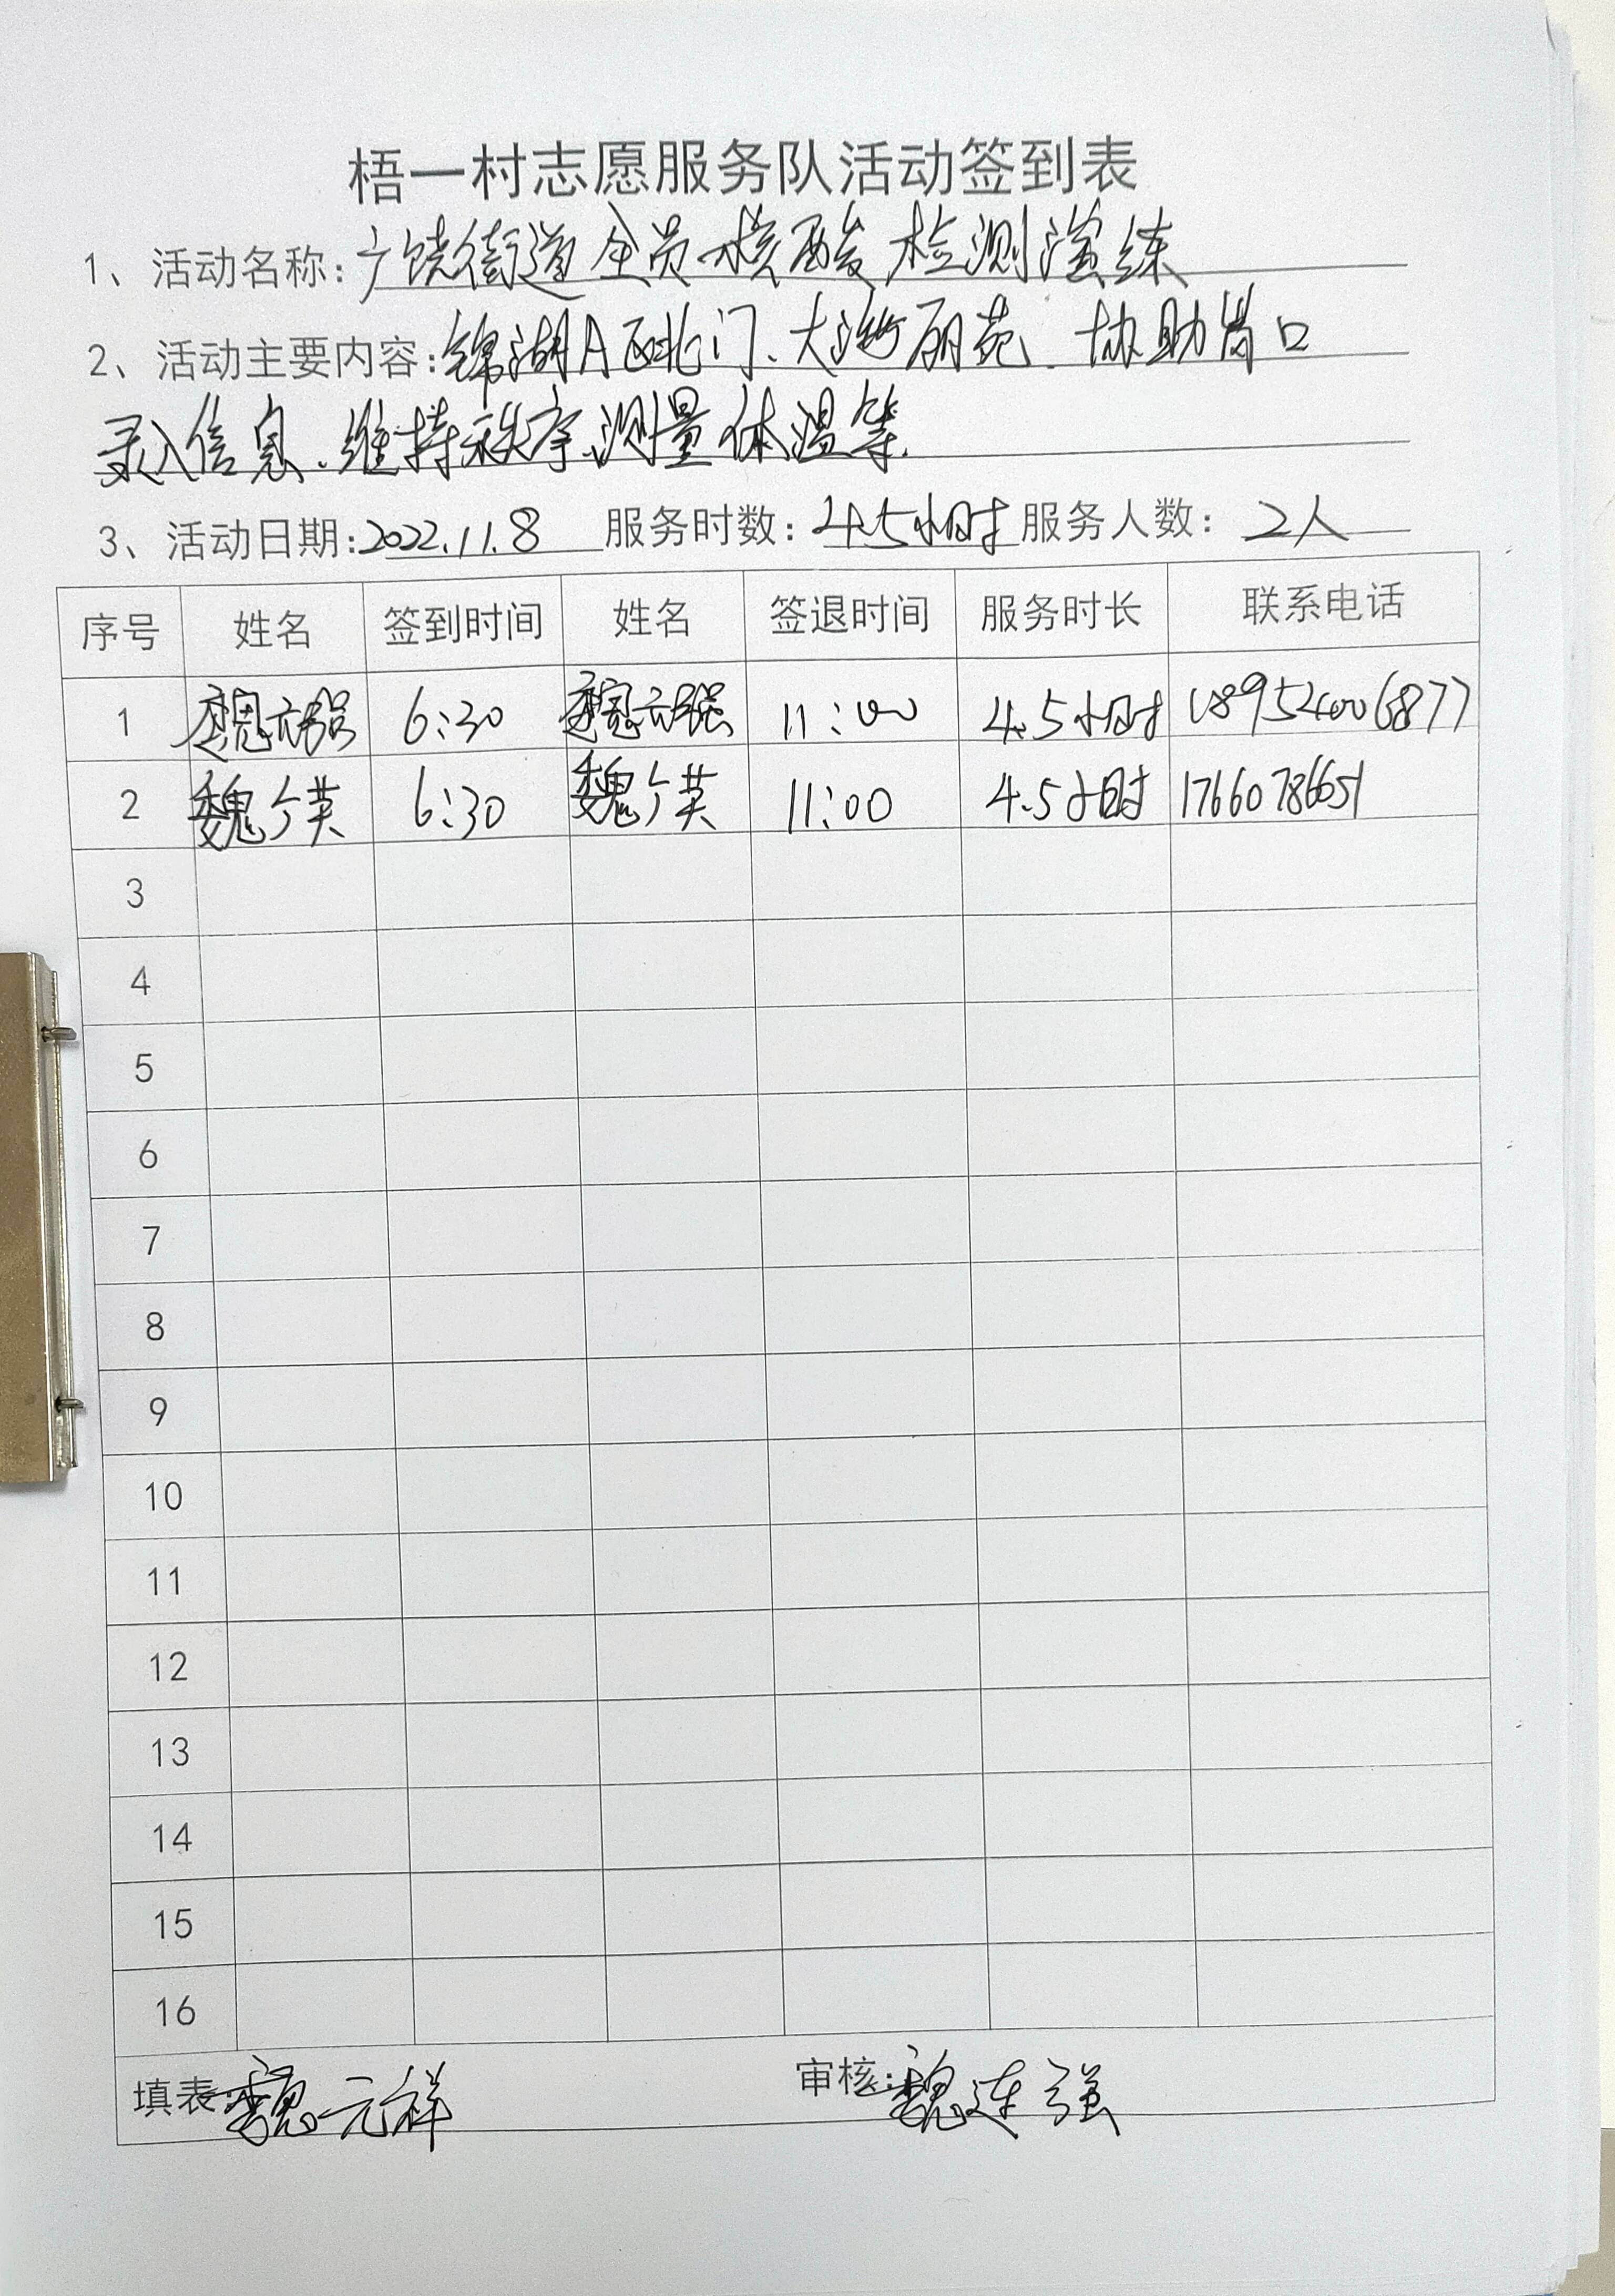 梧一村志愿服务队活动签到表
1、活动名称:广饶街道全员核酸检测演练
2、活动主要内容:锦湖A区北门、大海丽苑、协助岗口
录入信息、维持秩序、测量体温等.
3、活动日期:2022.11.8 服务时数:4.5小时 服务人数:2人
序号 姓名 签到时间 姓名 签退时间 服务时长 联系电话
1 魏 强 6:30 魏 强 11:00 4.5小时
2 魏 英 6:30 魏 英 11:00 4.5小时 17660786651
3
4
5
6
7
8
9
10
11
12
13
14
15
16
填表:魏元祥 审核:魏连强